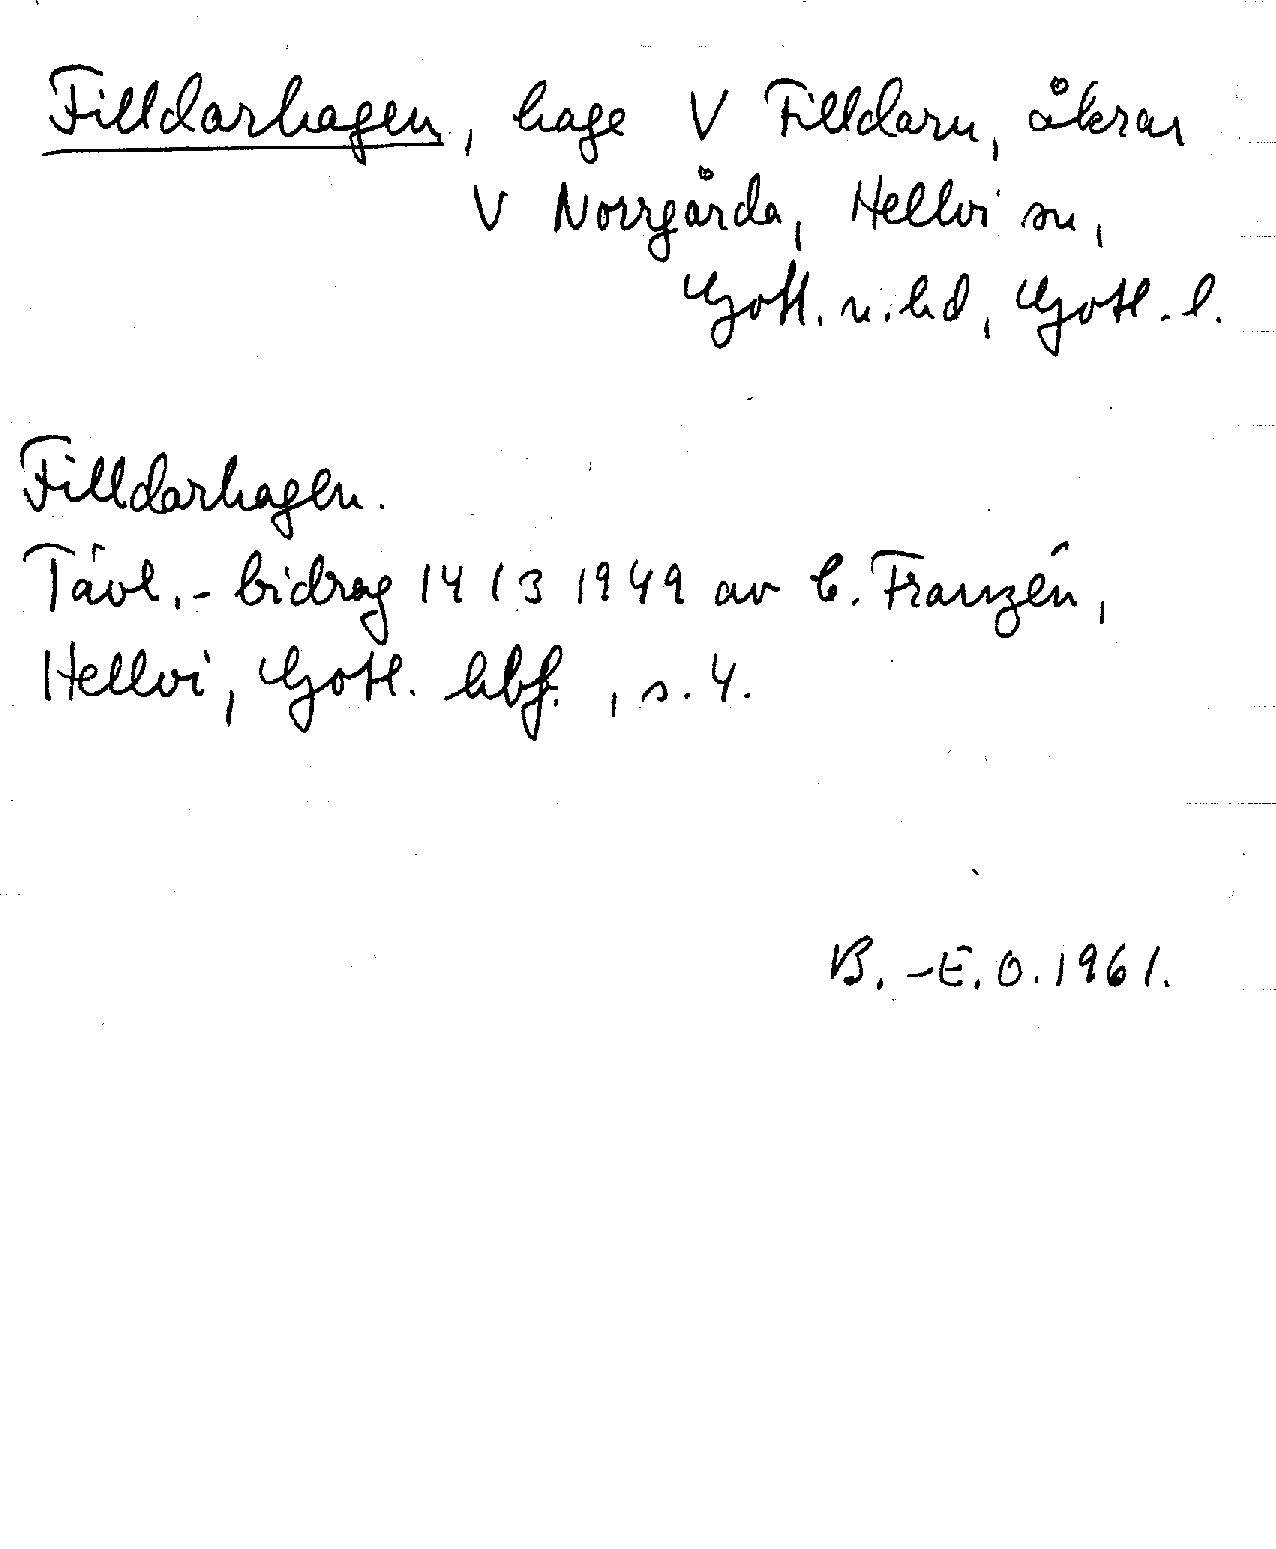 Filldarhagen, hage V Filldarn, åkrar
V Norrgårda, Hellvi sn,
Gotl. n. hd, Gotl. l.
Filldarhagen.
Tävl.-bidrag 14/3 1949 av C. Franzén,
Hellvi, Gotl. hbf., s. 4.
B.-E. O. 1961.